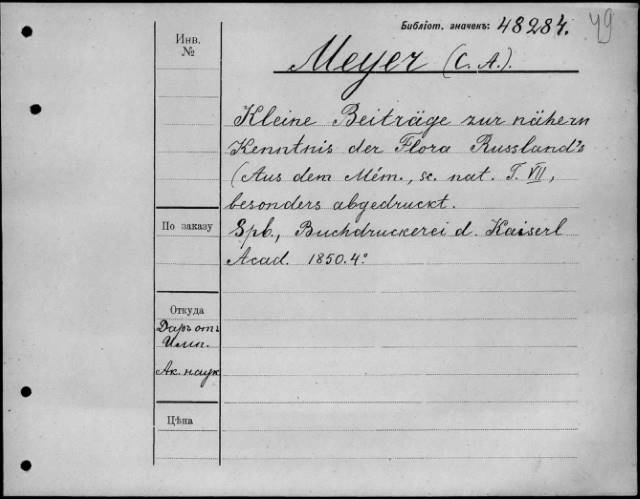 Библіот. значекъ: 48284. 49
Инв. №
Meyer (C. A.).
Kleine Beiträge zur nähern
Kenntnis der Flora Russland's
(Aus dem Mém., sc. nat. T. VII,
besonders abgedruckt.
По заказу
Spb., Buchdruckerei d. Kaiserl
Acad. 1850. 4°
Откуда
Даръ отъ
Имп.
Ак. наук
Цѣна